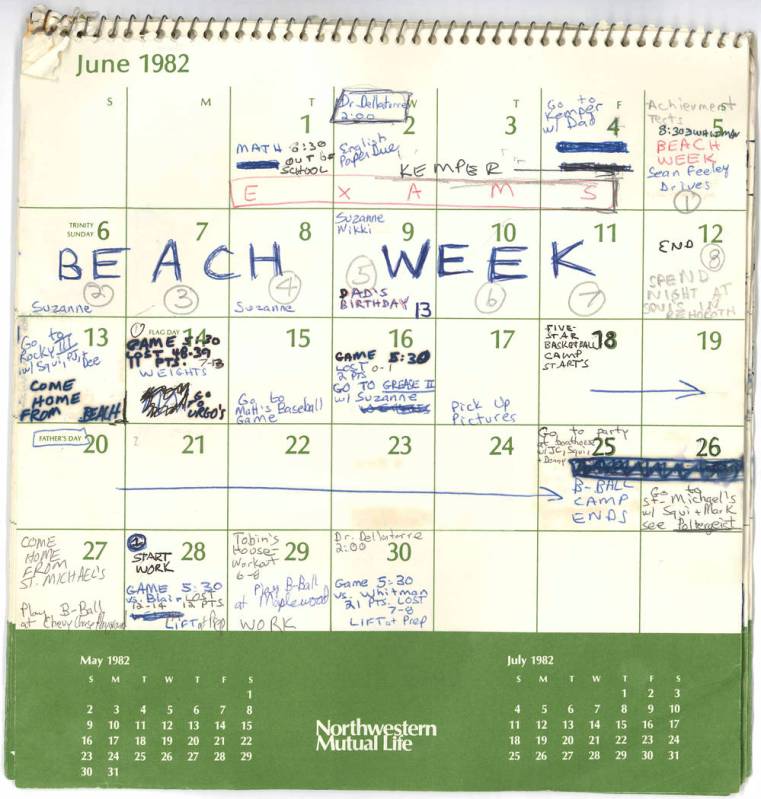 June 1982
S M T W T F S
1
MATH 8:30
OUT OF
SCHOOL
Dr. Dellatorre
2:00
2
English
Paper Due
3
KEMPER
Go to
Kemper
w/ Dad
4
Achievment
Tests
5
8:30
BEACH
WEEK
Sean Feeley
Drives
1
E X A M S
TRINITY
SUNDAY 6
7
8
Suzanne
Nikki
9
10
11
12
END
BEACH WEEK
2
3
4
5
6
7
8
Suzanne
Suzanne
DAD'S
BIRTHDAY
13
SPEND
NIGHT AT
SQUI'S IN
REHOBOTH
13
Go to
Rocky III
w/ Squi, PJ,
COME
HOME
FROM BEACH
1
FLAG DAY 14
GAME 5:30
LOST 48-39
11 PTS. 7-13
WEIGHTS
GO
URGO'S
15
Go to
Matt's Baseball
Game
16
GAME 5:30
LOST 0-1
2 PTS
GO TO GREASE II
w/ Suzanne
17
Pick Up
Pictures
FIVE-
STAR 18
BASKETBALL
CAMP
STARTS
19
FATHER'S DAY
20
21
22
23
24
Go to party
at boathouse
w/ JC, Squi,
+ Denny
25
B-BALL
CAMP
ENDS
26
Go to
St. Michael's
w/ Squi + Mark
see Poltergeist
27
COME
HOME
FROM
ST. MICHAEL'S
Play B-Ball
at Chevy Chase Playground
1
28
START
WORK
GAME 5:30
vs. Blair LOST
12-14 12 PTS
LIFT at Prep
Tobin's
House-
Workout
6-8
29
Play B-Ball
at Maplewood
WORK
Dr. Dellatorre
2:00
30
Game 5:30
vs. Whitman
21 PTS. LOST
7-8
LIFT at Prep
May 1982
S M T W T F S
1
2 3 4 5 6 7 8
9 10 11 12 13 14 15
16 17 18 19 20 21 22
23 24 25 26 27 28 29
30 31
Northwestern
Mutual Life
July 1982
S M T W T F S
1 2 3
4 5 6 7 8 9 10
11 12 13 14 15 16 17
18 19 20 21 22 23 24
25 26 27 28 29 30 31